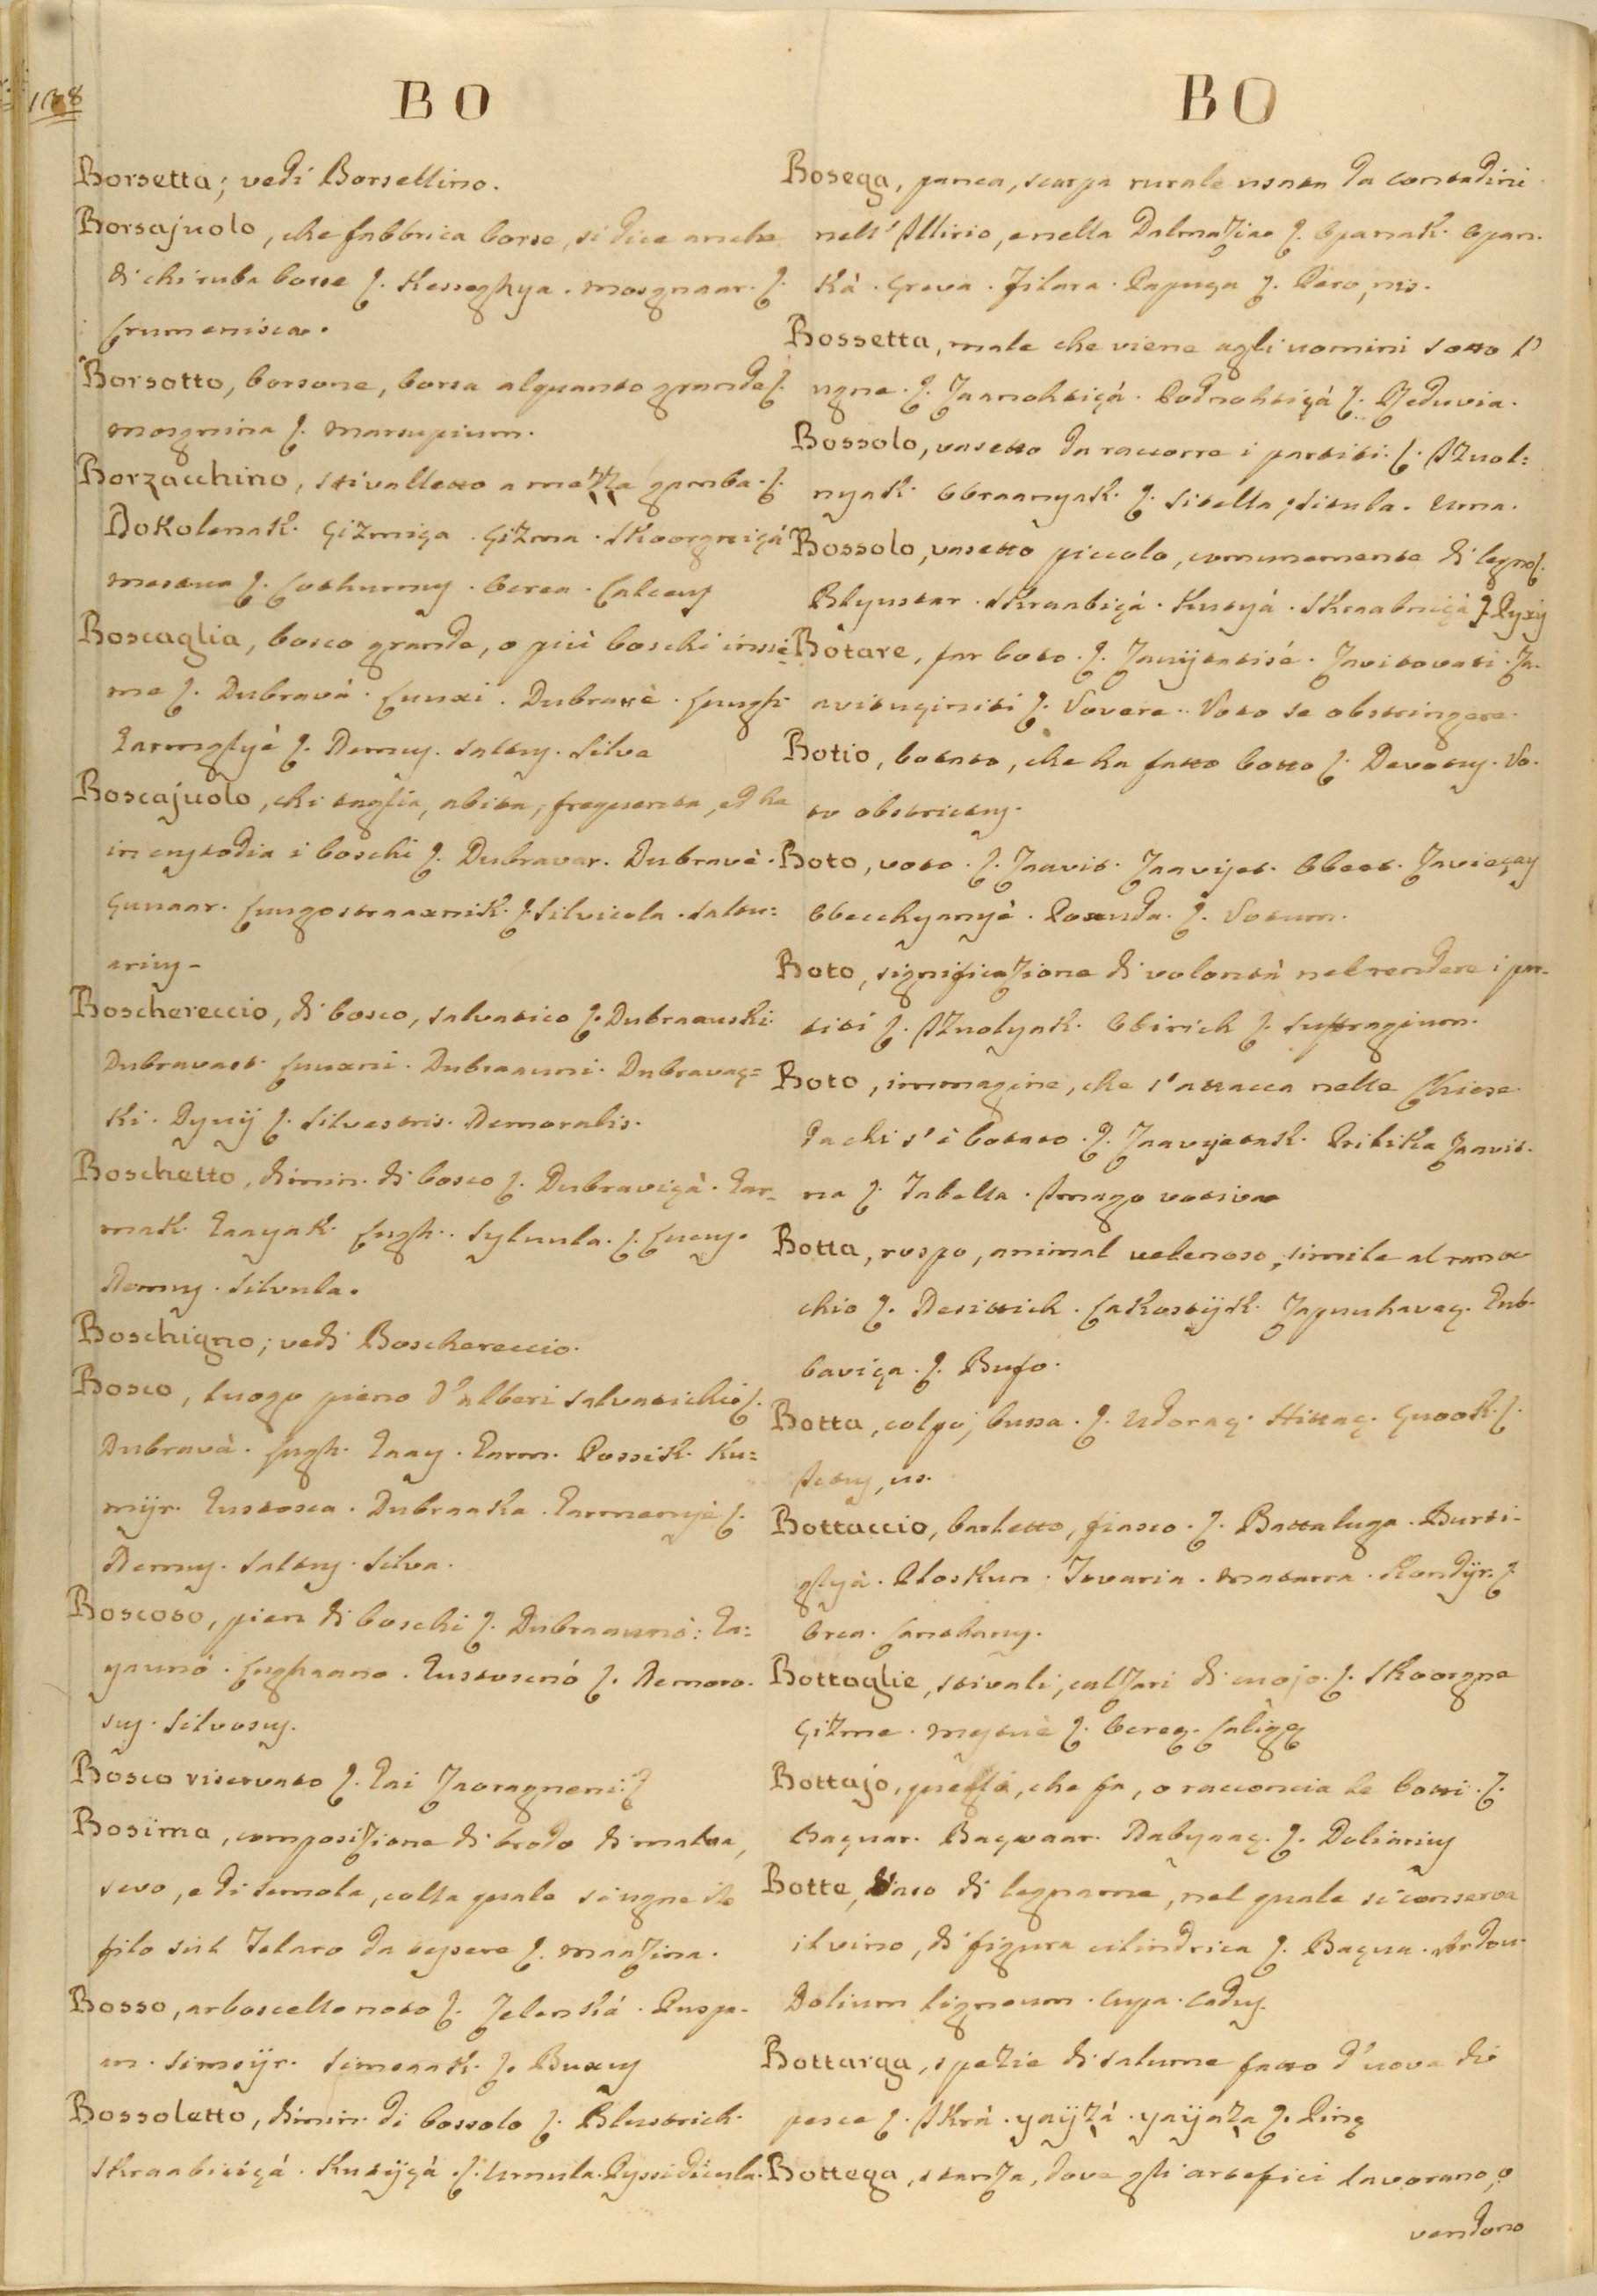 138
BO
Borsetta; vedi Borsellino.
Borsajuolo, che fabbrica borse, si dice anche
di chi ruba borse ſ. Kesseghya. Mosgnaar. ſ.
Crumenisca.
Borsotto, borsone, borsa alquanto grande ſ.
Mosgnina ſ. Marsupium.
Borzacchino, stivalletto a mezza gamba. ſ.
Dokolenak. Çizmiça. Çizma. Skoorgniçà
Mestva ſ. Cothurnus. Ocrea. Calceus
Boscaglia, bosco grande, o più boschi insie-
me ſ. Dubravà. Luuxi. Dubravè. Lungh.
Garmglyè ſ. Nemus. Saltus. Silva
Boscajuolo, chi taglia, abita, frequenta, ed ha
in custodia i boschi ſ. Dubravar. Dubravè.
Çuuaar. Lungostraaxnik. ſ. Silvicola. Saltu=
arius-
Boschereccio, di bosco, salvatico ſ. Dubraauski
Dubravast. Luuxni. Dubraauni. Dubravaç=
ki. Dyuij ſ. Silvestris. Nemoralis.
Boschetto, dimin. di bosco ſ. Dubraviçà. Gar-
mak. Gaayak. Lugh. Sylvula. ſ. Lucus.
Nemus. Silvula.
Boschigno; vedi Boschereccio.
Bosco, luogo pieno d'alberi salvatichi ſ.
Dubravà. Lugh. Gaay. Garm. Possik. Ku=
mijr. Gustosca. Dubraaka. Garmenyè ſ.
Nemus. Saltus. Silva.
Boscoso, pien di boschi ſ. Dubraaunò: Ga:
yaunó. Lughaano. Gustosenó ſ. Nemoro.
sus. Silvosus.
Bosco riservato ſ. Gai Zaoragneni ſ
Bosima, composizione di brodo di malva,
sevo, e di semola, colla quale si ugne il
filo sul Telaro da tessere ſ. Maazina.
Bosso, arboscello noto ſ. Zelenikà. Puspa-
an. Simscijr. Simsaak. ſ. Buxus
Bossoletto, dimin. di bossolo ſ. Blustrich.
Skraabiciçà. Kutijçà ſ. Urnula. Pyssidicula.
BO
Bosega, panca, scarpa rurale usata da contadini
nell' Illirio, e nella Dalmazia ſ. Opanak. Opan.
kà. Greva. Filara. Papuça ſ. Pero, nis.
Bossetta, male che viene agli uomini sotto l'
ugne. ſ. Zaanohtiçà. Podnohtiçà ſ. Reduvia.
Bossolo, vasetto da raccorre i partiti. ſ. Izuol:
nyak. Obraanyak. ſ. Sitella, situla. Urna.
Bossolo, vasetto piccolo, comunemente di legno ſ.
Blyustar. Skraabiçà. Kutyà. Skraabniçà ſ. Pyxis
Botare, far boto. ſ. Zauijtatisé. Zavitovati. Za-
avituçiniti ſ. Vovere. Voto se obstringere.
Botio, botato, che ha fatto botto ſ. Devotus. Vo-
to obstrictus.
Boto, voto. ſ. Zaavit. Zaavijet. Obeet. Zavieçay
Obecchyanyè. Ponuda. ſ. Votum.
Boto, significazione di volontà nel rendere i par-
titi ſ. Izuolyak. Obirich ſ. Suffragium.
Boto, immagine, che s'attacca nelle Chiese
da chi s'è botato. ſ. Zaavyetak. Prilika Zaavit-
na ſ. Tabella. Imago votiva
Botta, rospo, animal velenoso, simile al ranoc
chio ſ. Desittich. Cakostijk. Zapuuhavaç. Gub-
baviça. ſ. Bufo.
Botta, colpo, bussa. ſ. Udoraç. Hittaç. Çuook. ſ.
Ictus, us.
Bottaccio, barletto, fiasco. ſ. Battaluga. Burti-
glyà. Ploskun. Tovaria. Matarra. Kondijr. ſ.
Orca. Cantharus.
Bottaglie, stivali, calzari di cuojo. ſ. Skoorgne
Çizme. Mestuè ſ. Ocreę. Caligę
Bottajo, quello, che fa, o racconcia le botti. ſ.
Baçuar. Baçvaar. Nabyaaç. ſ. Doliarius
Botte, Vaso di legname, nel quale si conserva
il vino, di figura cilindrica ſ. Baçua. Ardou.
Dolium ligneum. Cupa. Cadus.
Bottarga, spezie di salume fatto d'uova di
pesce ſ. Ikrà. Yaijzà. Yaijaza ſ. Ping
Bottega, stanza, dove gli artefici lavorano, o
vendono